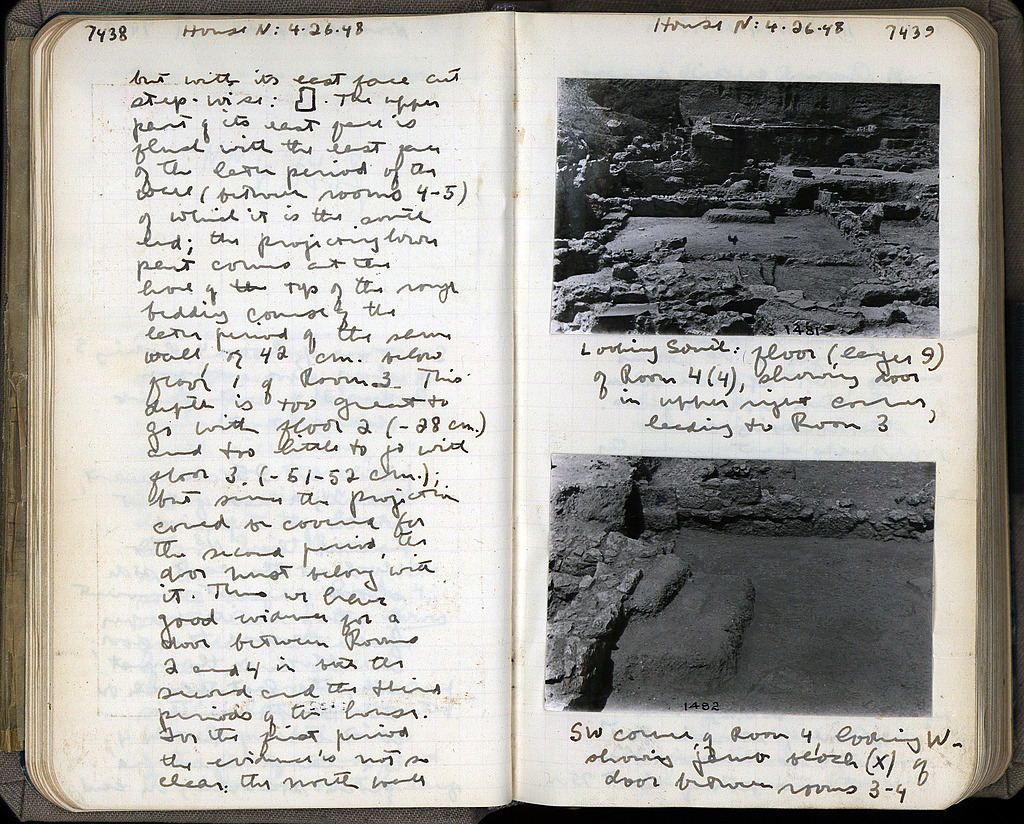 7438 House N: 4.26.48
but with its east face cut
step-wise: . The upper
part of its east face is
flush with the east face
of the later period of the
wall (between rooms 4-5)
of which it is the south
end; the projecting lower
part comes at the
level of the top of the rough
bedding course of the
later period of the same
wall, 42 cm. below
floor 1 of Room 3. This
depth is too great to
go with floor 2 (-28 cm.)
and too little to go with
floor 3. (-51-52 cm.);
but since the projection
could be covered for
the second period, the
door must belong with
it. Thus we have
good evidence for a
door between Rooms
2 and 4 in both the
second and the third
periods of the house.
For the first period
the evidence is not so
clear: the north wall
House N: 4.26.48 7439
4
1481
Looking South: floor (layer 9)
of Room 4(4), showing door
in upper right corner,
leading to Room 3
1482
SW corner of Room 4, looking W-
showing jamb block (x) of
door between rooms 3-4